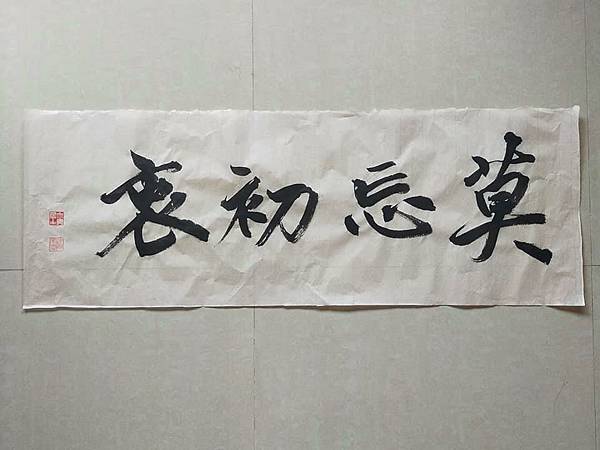 莫忘初衷